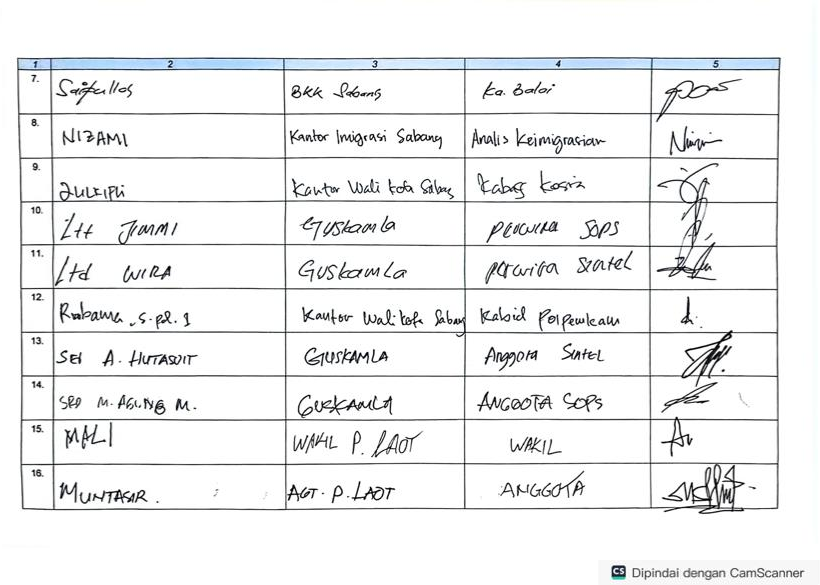 1 2 3 4 5
7. Saifullah BKK Sabang Ka. Balai
8. NIZAMI Kantor Imigrasi Sabang Analis Keimigrasian
9. ZULKIPLI Kantor Wali kota Sabang Kabag
10. JIMMI Guskamla perwira SOPS
11. WIRA Guskamla perwira Sintel
12. S.pd.I Kantor Walikota Sabang Kabid
13. A. HUTASOIT GUSKAMLA Anggota Sintel
14. M. AGUNG M. GUSKAMLA ANGGOTA SOPS
15. MALI WAKIL P. LAOT WAKIL
16. MUNTASAR. AGT. P. LAOT ANGGOTA
CS Dipindai dengan CamScanner